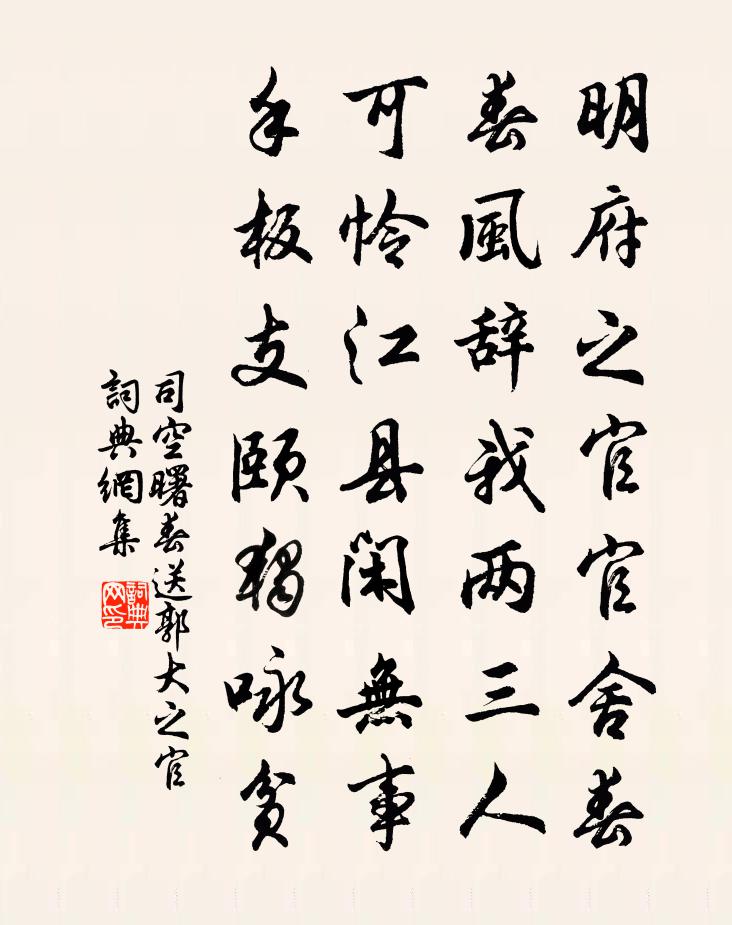 明府之官官舍春
春風辞我两三人
可怜江县閑無事
手板支颐獨咏贫
司空曙春送郭大之官
詞典網集
詞典网印